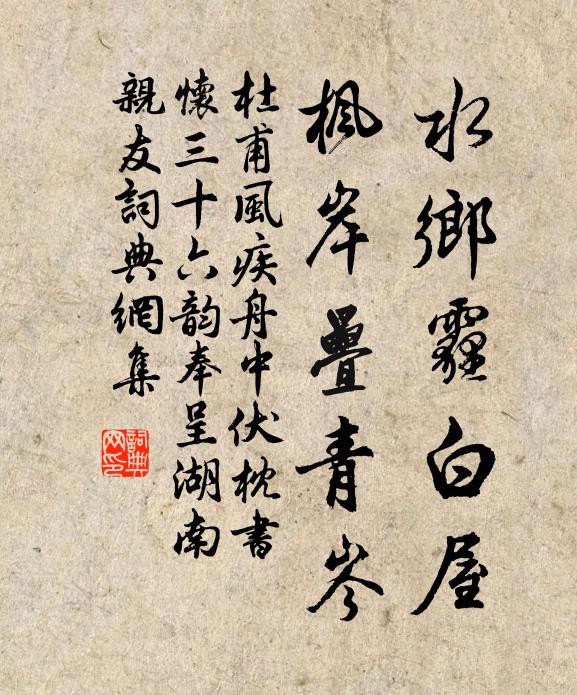 水鄉霾白屋
楓岸疊青岑
杜甫風疾舟中伏枕書
懷三十六韵奉呈湖南
親友詞典網集
詞典
网印